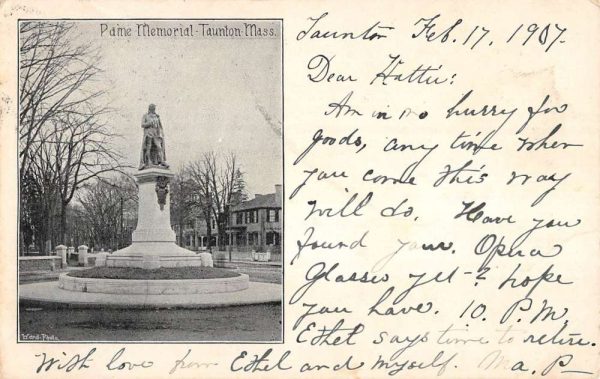 Paine Memorial-Taunton-Mass.
Taunton Feb. 17, 1907.
Dear Hattie:
Am in no hurry for
goods, any time when
you come this way
will do. Have you
found your Opera
Glasses yet-? hope
you have. 10. P.M.
Ethel says time to retire.
With love from Ethel and myself. Ma. P-